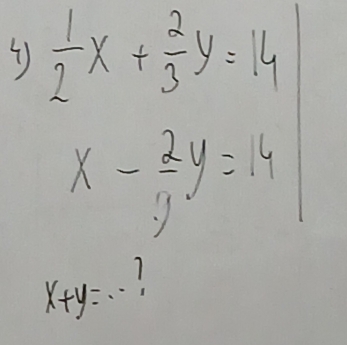 4) 1/2 x + 2/3 y = 14
x - 2/9 y = 14
x+y=..?